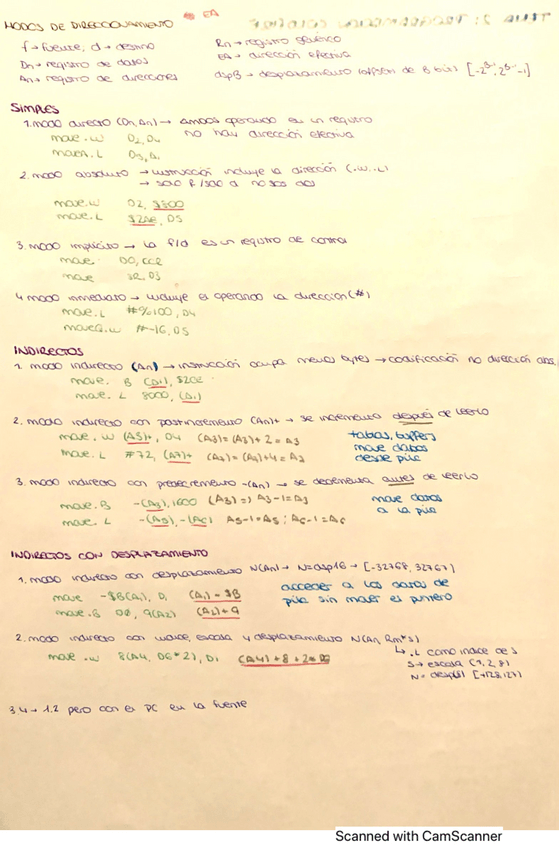 MODOS DE DIRECCIONAMIENTO * EA
f → fuente, d → destino
Rn → registro genérico
Dn → registro de datos
EA → dirección efectiva
An → registro de direcciones
dspB → desplazamiento (offset) de B bits
SIMPLES
1. modo directo (Dn, An) → ambos operando en un registro
no hay dirección efectiva
move.w D2, D4
movea.L D3, A
2. modo absoluto → instrucción incluye la dirección (.w .L)
→ solo f/
move.w D2, $300
move.L $20E, D5
3. modo implícito → la f/d es un registro de control
move D0, CCR
move SR, D3
4. modo inmediato → incluye el operando la dirección (#)
move.L #%100, D4
#-16, D5
INDIRECTOS
1. modo indirecto (An) → instrucción ocupa menos bytes → codificación no dirección abs
move.B (A1), $20E
move.L 8000, (A1)
2. modo indirecto con postincremento (An)+ → se incrementa después de leerlo
move.w (A3)+, D4 (A3) = (A3) + 2 = A3
move.L #72, (A7)+ (A7) = (A7) + 4 = A7
tablas, buffers
move datos
desde pila
3. modo indirecto con predecremento -(An) → se decrementa antes de leerlo
move.B -(A3), 1600 (A3) = A3-1 = A3
move.L -(A5), -(A6) A5-1 = A5; A6-1 = A6
move datos
a la pila
INDIRECTOS CON DESPLAZAMIENTO
1. modo indirecto con desplazamiento N(An) → N = dsp16 → [-32768, 32767]
move -$B(A1), D (A1) - $B
move.B D0, 9(A2) (A2) + 9
acceder a los datos de
pila sin mover el puntero
2. modo indirecto con índice, escala y desplazamiento N(An, Rm*s)
move.w 8(A4, D6*2), D1 (A4) + 8 + 2*D6
↳ .L como índice de s
S → escala
N = despl8 [-128, 127]
3.4 → 1.2 pero con el PC en la fuente
Scanned with CamScanner